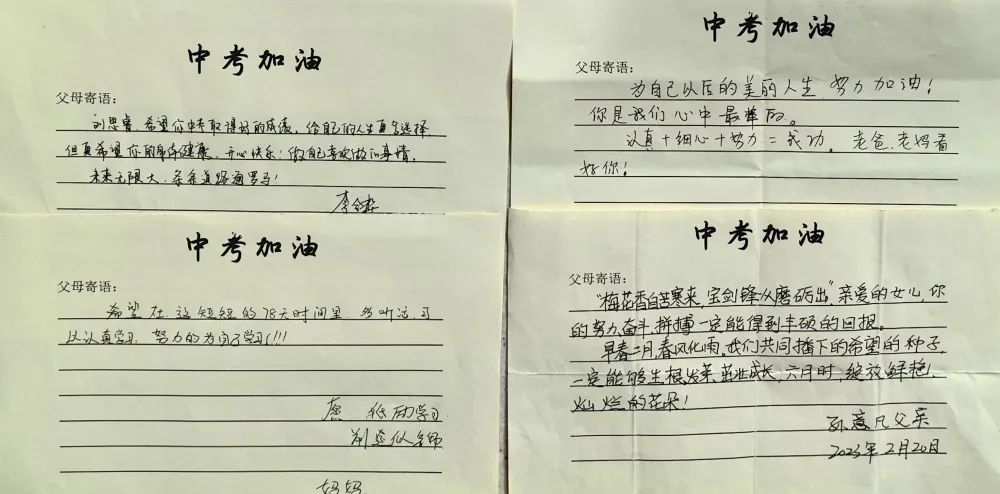 中考加油
父母寄语：
刘思睿，希望你中考取得好的成绩，给自己的人生更多选择
但更希望你的身体健康，开心快乐！做自己喜欢做的事情。
未来无限大，条条道路通罗马！
中考加油
父母寄语：
为自己以后的美丽人生，努力加油！
你是我们心中最棒的。
认真+细心+努力=成功。老爸、老妈看
好你！
中考加油
父母寄语：
希望在这短短的78天时间里，多听话，可
以认真学习，努力的为何学习!!!
学习
老师
妈妈
中考加油
父母寄语：
"梅花香自苦寒来，宝剑锋从磨砺出"亲爱的女儿，你
的努力、奋斗、拼搏一定能得到丰硕的回报。
早春二月，春风化雨。我们共同播下的希望的种子，
一定能够生根、发芽、茁壮成长，六月时，绽放鲜艳、
灿烂的花朵！
孙意凡父亲
2023年2月20日